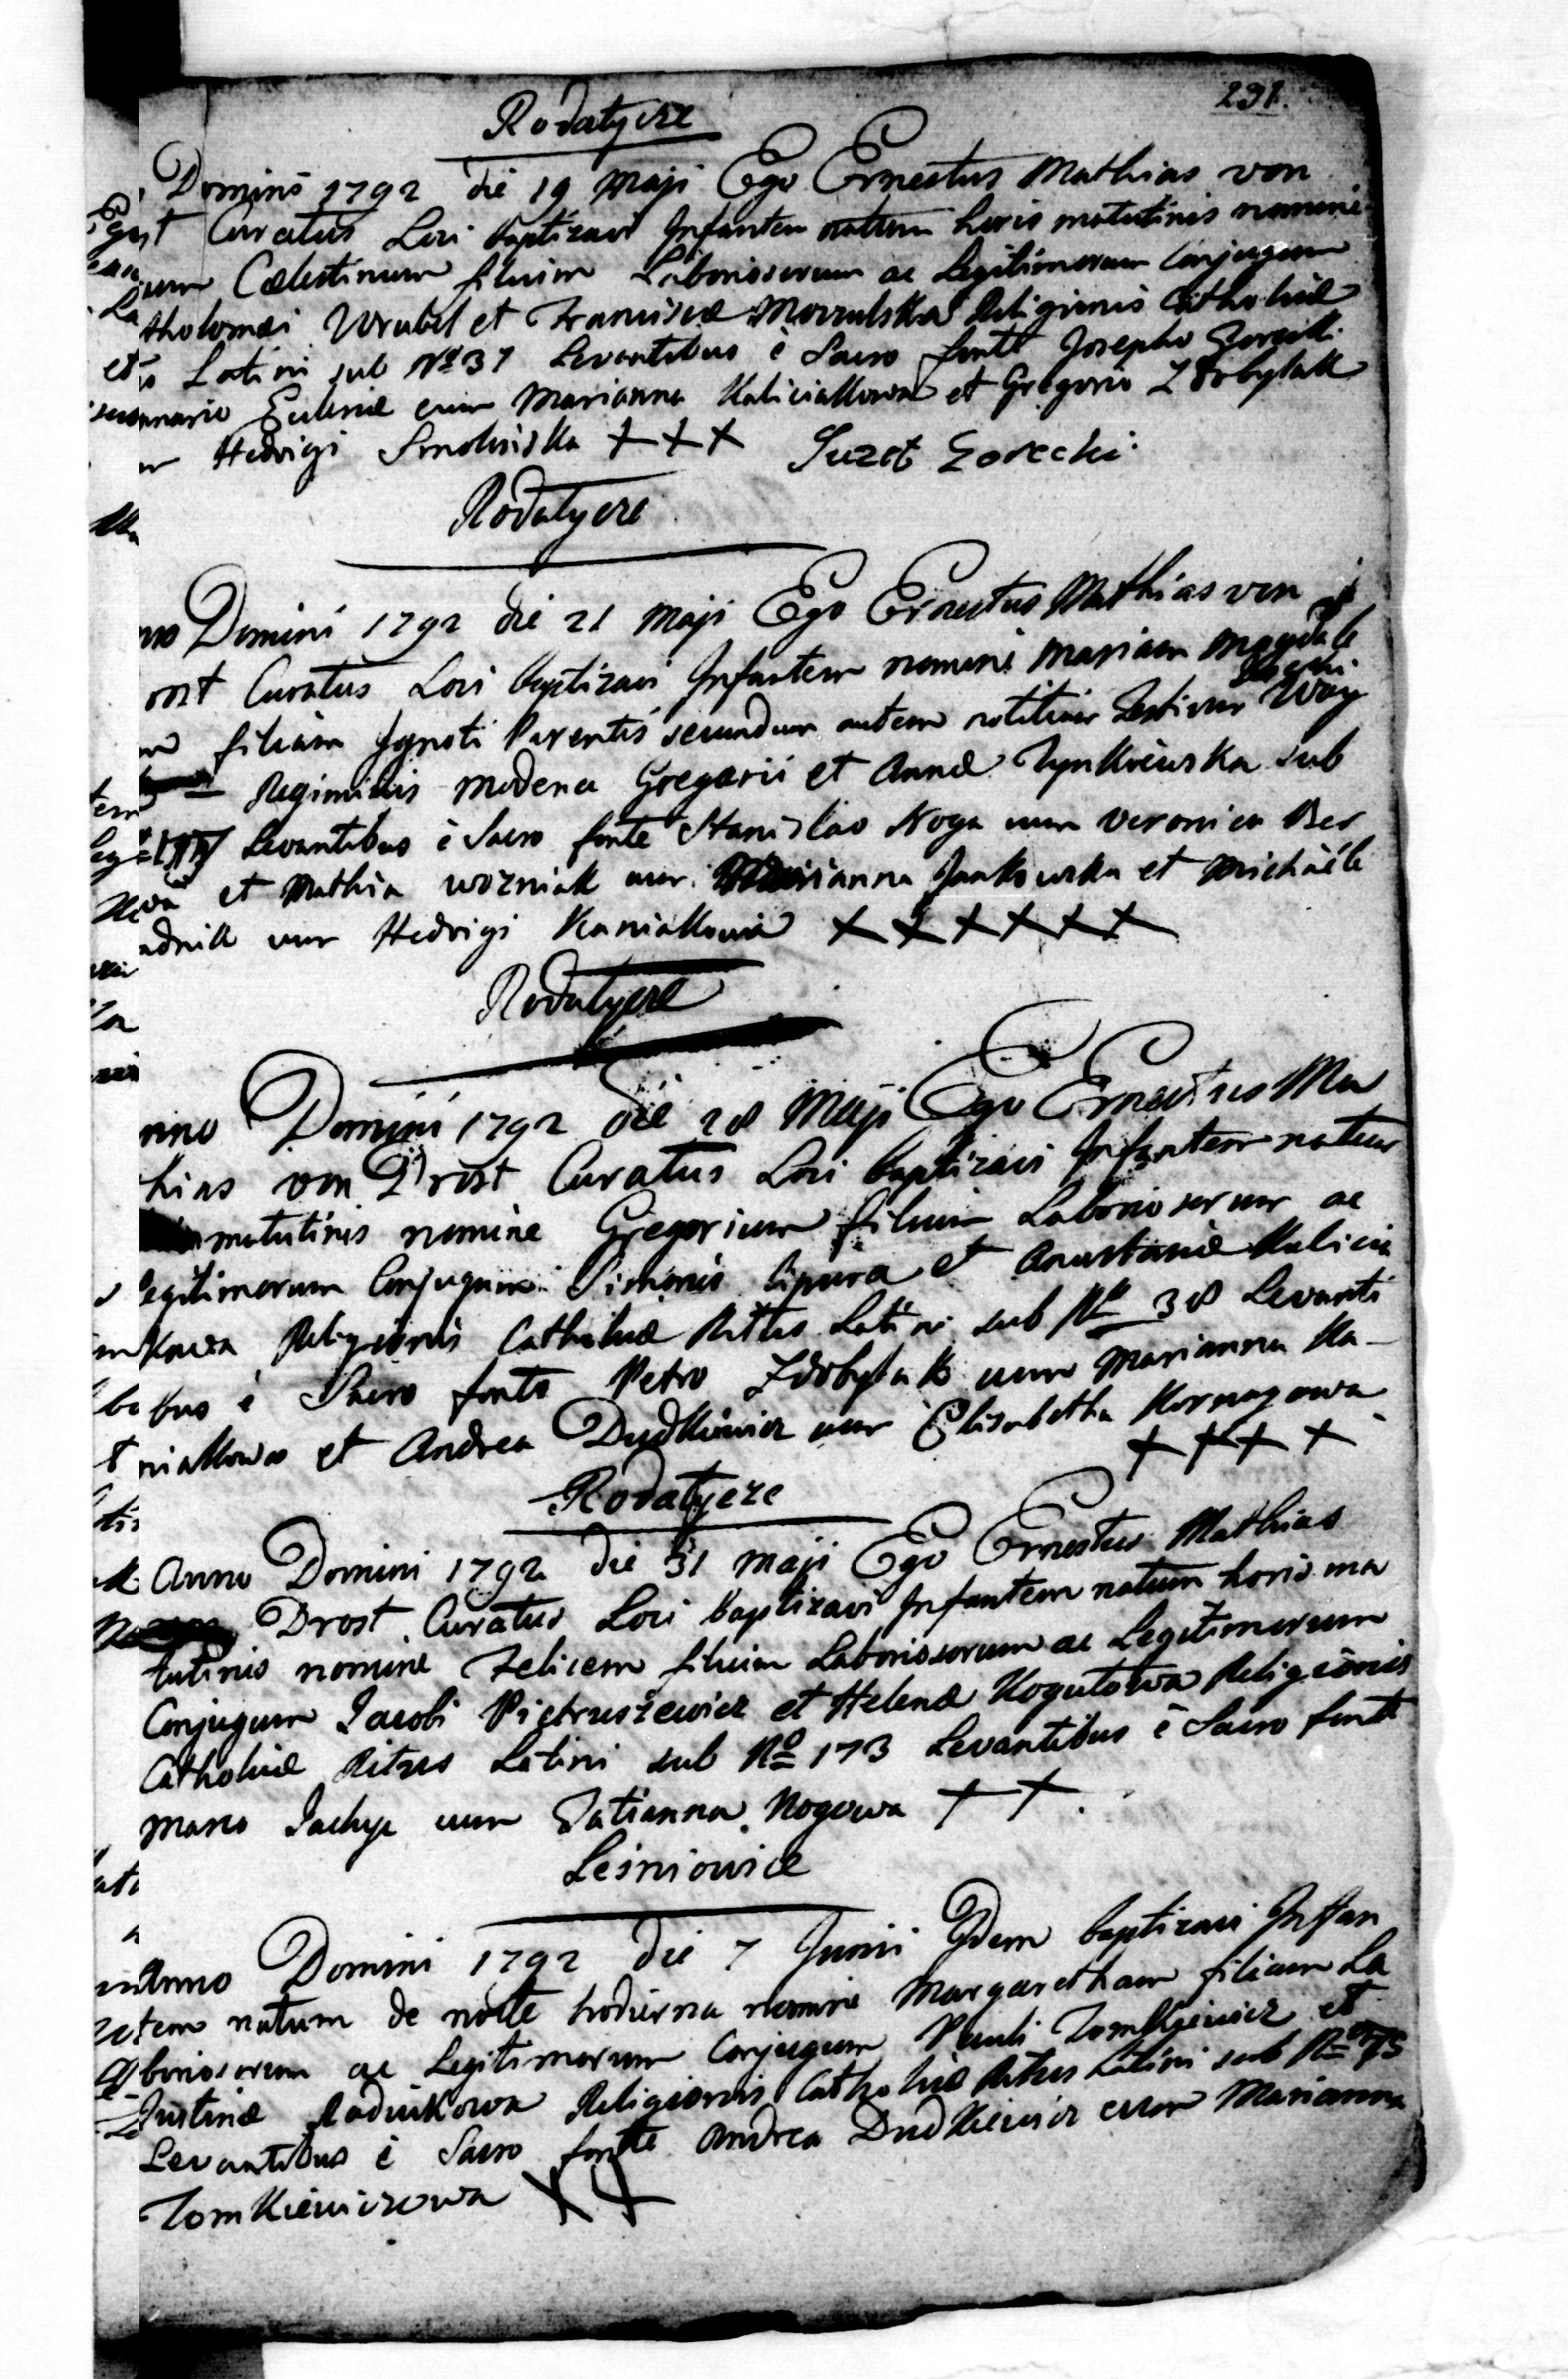 231.
Rodatycze
Domini 1792 die 19 Maji Ego Ernestus Mathias von
Curatus Loci baptizavi Infantem natum horis matutinis nomine
Cælestinum filium Laboriosorum ac Legitimorum Conjugum
tholomæi Wrubel et Franciscæ Religionis Catholicæ
Latini sub No 37 Levantibus è Sacro fonte Josepho Gorecki
cum Marianna Kaliciakowa et Gregorio Zdrbytak
Hedvigi Smolinska +++ Juzef Gorecki
Rodatycze
no Domini 1792 die 21 Maji Ego Ernestus Mathias von
rost Curatus Loci baptizavi Infantem nomine Mariam Magdale
filiam Ignoti Parentis secundum autem notitiam Testium Woy
Regiminis Modena Gregorii et Annæ Tynkiewska sub
Levantibus è Sacro fonte Stanislao Noga cum Veronica
et Mathia Wozniak cum Marianna Jankowska et Michaële
adnik cum Hedvigi Kaniakowa ++++++
Rodatycze
nno Domini 1792 die 28 Maji Ego Ernestus Ma
hias von Drost Curatus Loci baptizavi Infantem natum
matutinis nomine Gregorium filium Laboriosorum ac
egitimorum Conjugum Simonis Cipura et Anastasiæ Kalicia
kowa Religionis Catholicæ Ritus Latini sub No 38 Levanti
bus è Sacro fonte Petro Zdrbytak cum Marianna Ka-
niakowa et Andrea Dudkiewicz cum Elisabetha Kornagowa
++++
Rodatycze
Anno Domini 1792 die 31 Maji Ego Ernestus Mathias
Drost Curatus Loci baptizavi Infantem natum horis ma
tutinis nomine Felicem filium Laboriosorum ac Legitimorum
Conjugum Jacobi Pietruszewicz et Helenæ Kogutowa Religionis
Catholicæ Ritus Latini sub No 173 Levantibus è Sacro fonte
Marco Jachyr cum Tatianna Nogowa ++.
Leśniowice
Anno Domini 1792 die 7 Junii Idem baptizavi Infan
tem natum de nocte hodierna nomine Margaretham filiam La
boriosorum ac Legitimorum Conjugum Pauli Tomkiewicz et
Justinæ Radnikowa Religionis Catholicæ Ritus Latini sub No 75
Levantibus è Sacro fonte Andrea Dudkiewicz cum Marianna
Tomkiewiczowa ++